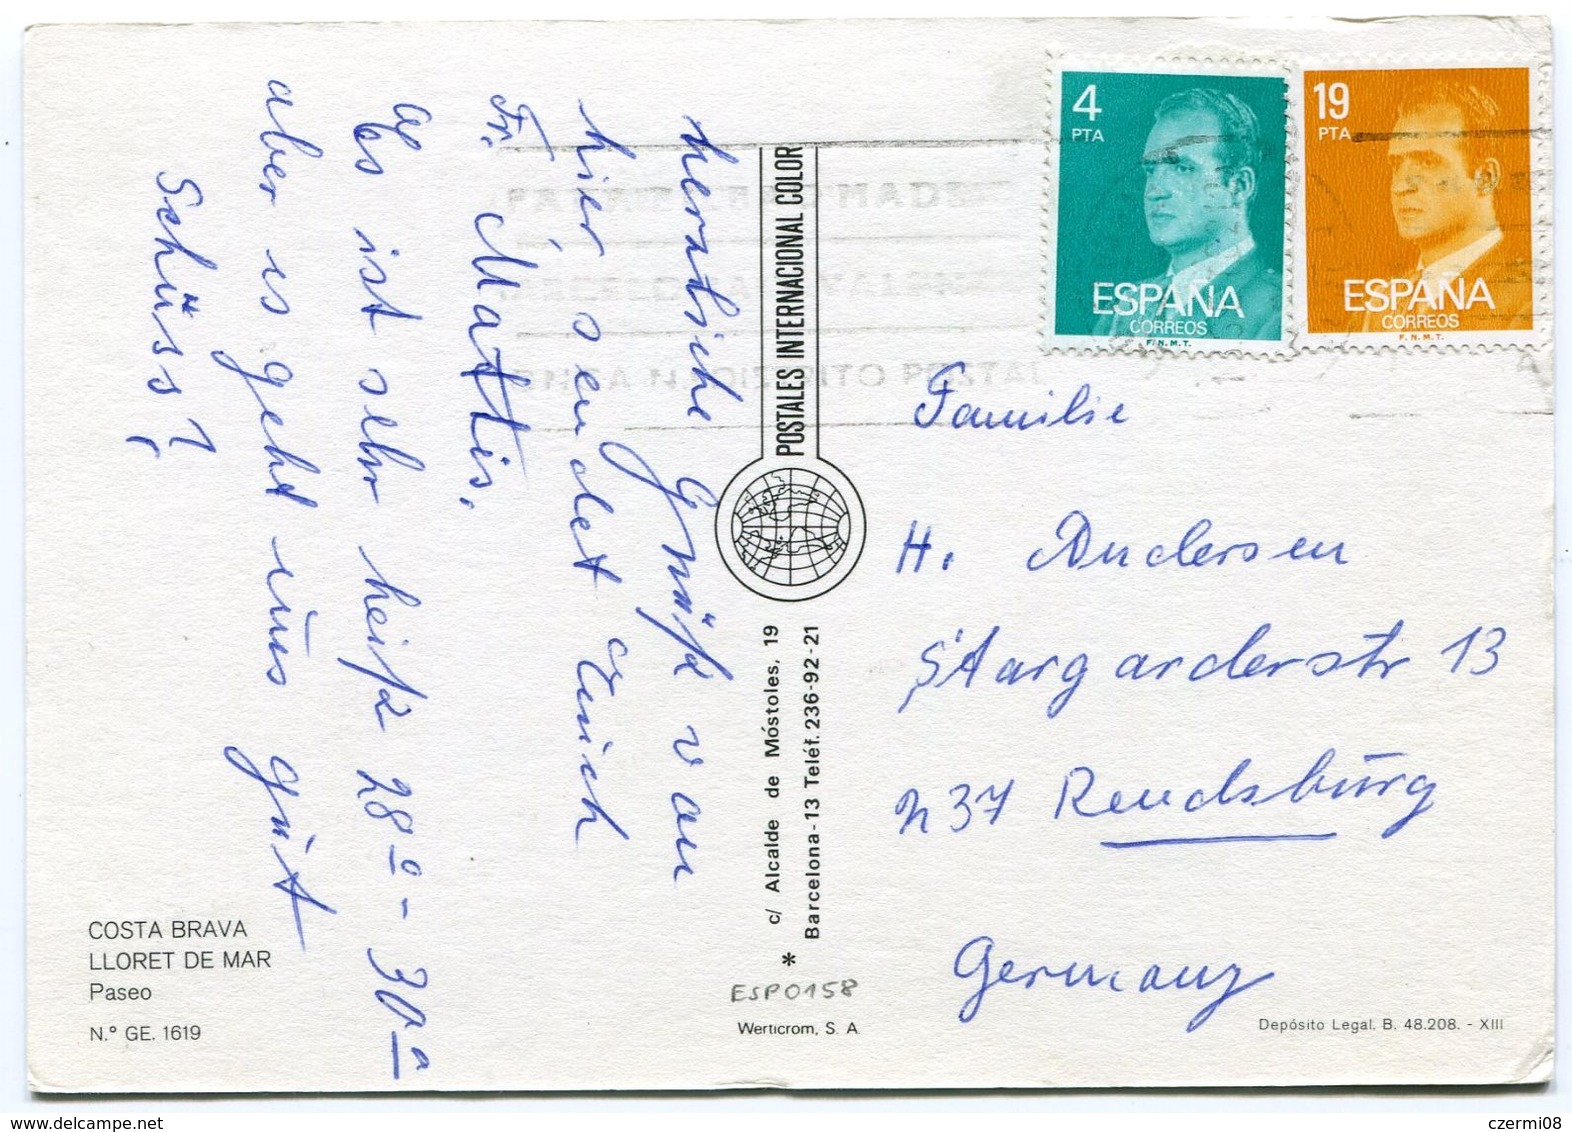 Herzliche Grüße von
hier sendet Euich
Fr. Mattis.
Es ist sehr heiß 28º - 30º
aber es geht uns gut
Schüss!
POSTALES INTERNACIONAL COLOR
c/ Alcalde de Móstoles, 19
Barcelona-13 Teléf. 236-92-21
*
ESP0158
Werticrom, S. A.
COSTA BRAVA
LLORET DE MAR
Paseo
N.º GE. 1619
4
PTA
ESPAÑA
CORREOS
F. N. M. T.
19
PTA
ESPAÑA
CORREOS
F. N. M. T.
POSTAL
Familie
H. Andersen
Stargarderstr 13
237 Rendsburg
Germany
Depósito Legal. B. 48.208. - XIII
czermi08